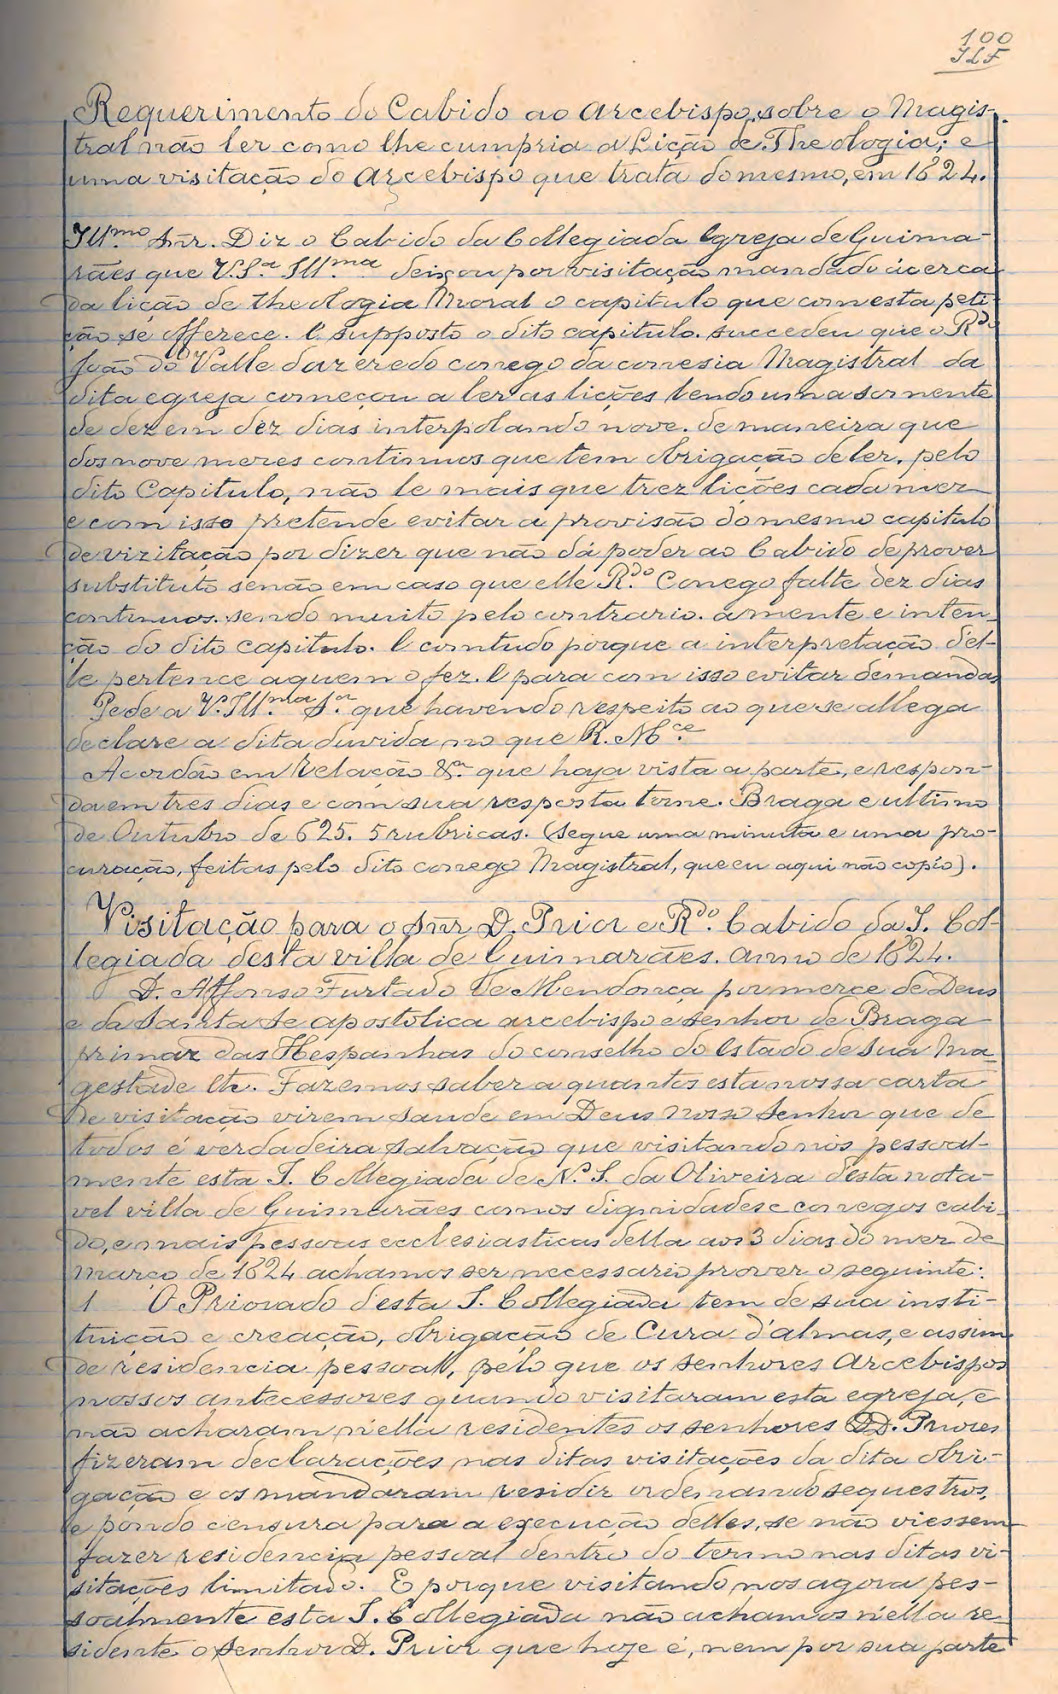 100
JLF
Requerimento do Cabido ao Arcebispo, sobre o Magis-
tral não ler como lhe cumpria a Lição de Theologia; e
uma visitação do Arcebispo que trata do mesmo, em 1624.
Ill.mo Snr. Diz o Cabido da Collegiada Egreja de Guima-
rães que V. S.a Ill.ma deixou por visitação mandado ácerca
da lição de theologia Moral o capitulo que com esta peti-
ção se offerece. E supposto o dito capitulo. succedeu que o R.do
João do Valle dazeredo conego da conesia Magistral da
dita egreja começou a ler as lições lendo uma somente
de dez em dez dias interpolando nove. de maneira que
dos nove mezes continuos que tem obrigação de ler, pelo
dito Capitulo, não le mais que trez lições cada mez
e com isso pretende evitar a provisão do mesmo capitulo
de vizitação por dizer que não dá poder ao Cabido de prover
substituto senão em caso que elle R.do Conego falte dez dias
continuos. sendo muito pelo contrario. a mente e inten-
ção do dito capitulo. E comtudo porque a interpretação del-
le pertence aquem o fez. E para com isso evitar demandas
Pede a V. Ill.ma S.a que havendo respeito ao que se allega
declare a dita duvida no que R. M.ce
Acordão em Relação &.a que haja vista a parte, e respon-
da em tres dias e com sua resposta torne. Braga e ultimo
de Outubro de 625. 5 rubricas. (segue uma minuta e uma pro-
curação, feitas pelo dito conego Magistral, que eu aqui não copío).
Visitação para o Snr D. Prior e R.do Cabido da I. Col-
legiada desta villa de Guimarães. anno de 1624.
D. Affonso Furtado de Mendonça por merce de Deus
e da Santa Se apostolica arcebispo e senhor de Braga
primaz das Hespanhas do conselho do Estado de sua Ma-
gestade etc. Fazemos saber a quantos esta nossa carta
de visitação virem saude em Deus nosso Senhor que de
todos é verdadeira salvação que visitando nós pessoal-
mente esta I. Collegiada de N. S. da Oliveira desta nota-
vel villa de Guimarães com os dignidades e conegos cabi-
do, e mais pessoas ecclesiasticas della aos 3 dias do mez de
março de 1624 achamos ser necessario prover o seguinte:
1 O Priorado desta I. Collegiada tem de sua insti-
tuição e creação, obrigação de Cura d'almas, e assim
de residencia pessoal, pelo que os senhores Arcebispos
nossos antecessores quando visitaram esta egreja, e
não acharam n'ella residentes os senhores DD. Priores
fizeram declarações nas ditas visitações da dita obri-
gação e os mandaram residir ordenando sequestros,
e pondo censura para a execução delles, se não viessem
fazer residencia pessoal dentro do termo nas ditas vi-
sitações limitado. E porque visitando nos agora pes-
soalmente esta I. Collegiada não achamos n'ella re-
sidente o senhor D. Prior que hoje é, nem por sua parte